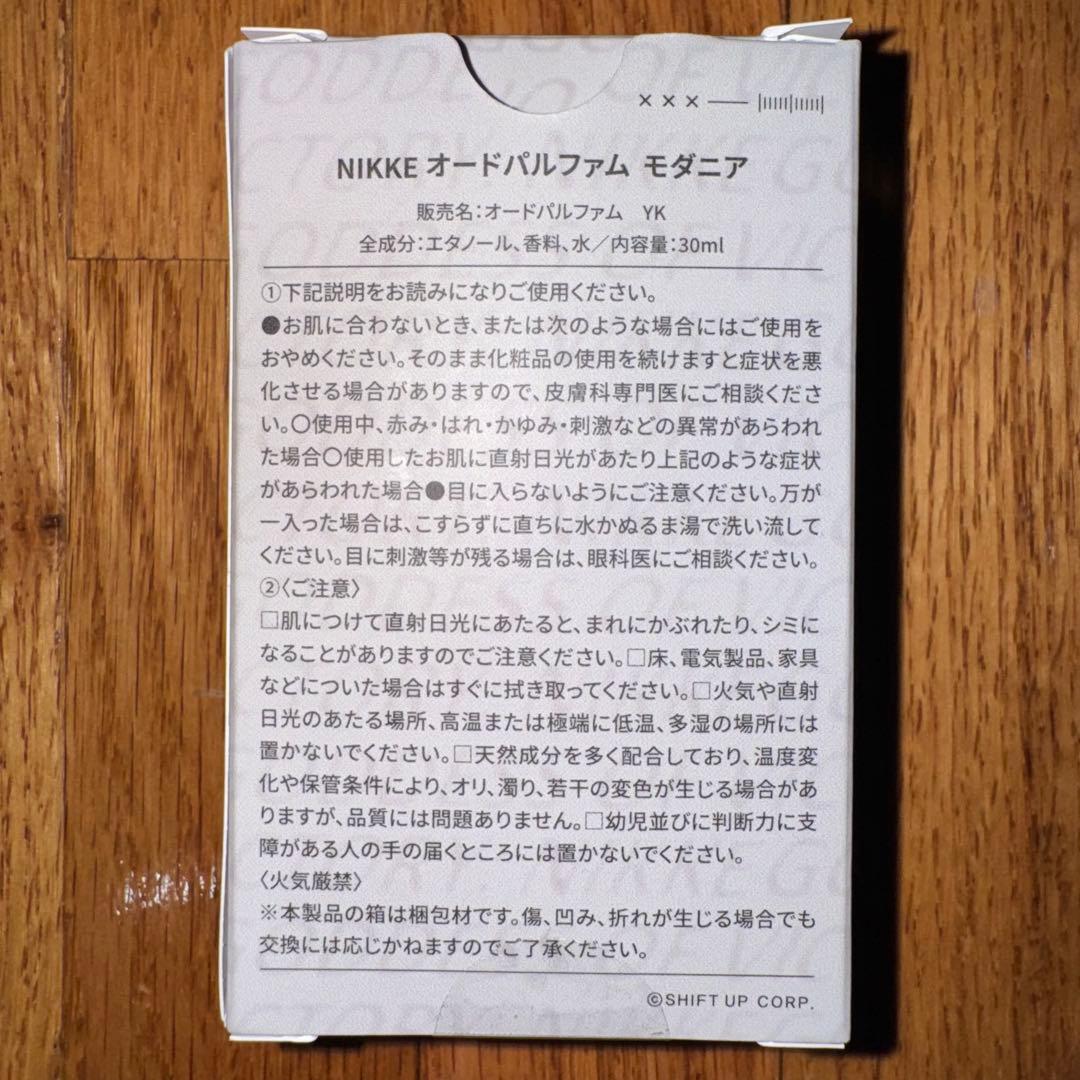 ×××
NIKKE オードパルファム モダニア
販売名：オードパルファム　YK
全成分：エタノール、香料、水／内容量：30ml
①下記説明をお読みになりご使用ください。
●お肌に合わないとき、または次のような場合にはご使用を
おやめください。そのまま化粧品の使用を続けますと症状を悪
化させる場合がありますので、皮膚科専門医にご相談くださ
い。〇使用中、赤み・はれ・かゆみ・刺激などの異常があらわれ
た場合〇使用したお肌に直射日光があたり上記のような症状
があらわれた場合●目に入らないようにご注意ください。万が
一入った場合は、こすらずに直ちに水かぬるま湯で洗い流して
ください。目に刺激等が残る場合は、眼科医にご相談ください。
②〈ご注意〉
□肌につけて直射日光にあたると、まれにかぶれたり、シミに
なることがありますのでご注意ください。□床、電気製品、家具
などについた場合はすぐに拭き取ってください。□火気や直射
日光のあたる場所、高温または極端に低温、多湿の場所には
置かないでください。□天然成分を多く配合しており、温度変
化や保管条件により、オリ、濁り、若干の変色が生じる場合があ
りますが、品質には問題ありません。□幼児並びに判断力に支
障がある人の手の届くところには置かないでください。
〈火気厳禁〉
※本製品の箱は梱包材です。傷、凹み、折れが生じる場合でも
交換には応じかねますのでご了承ください。
©SHIFT UP CORP.